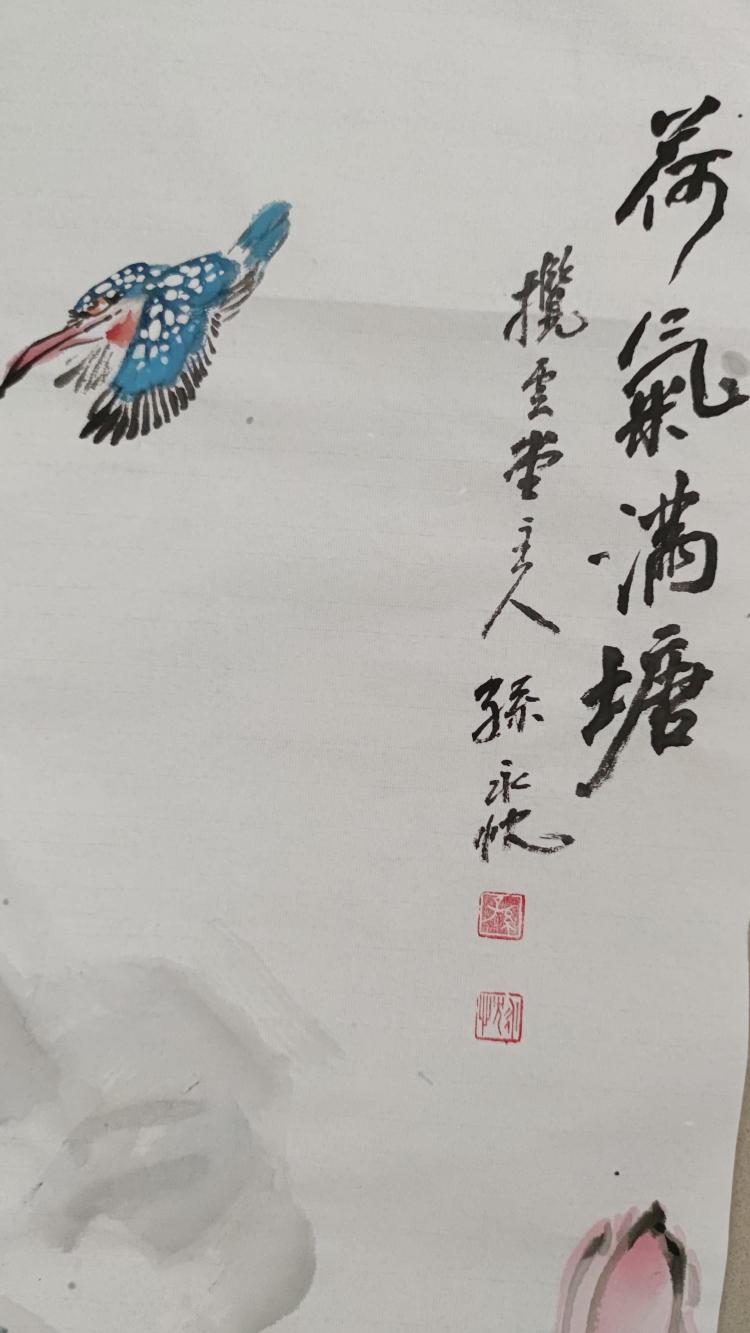 荷氣满塘
攬雲堂主人 孫永忱